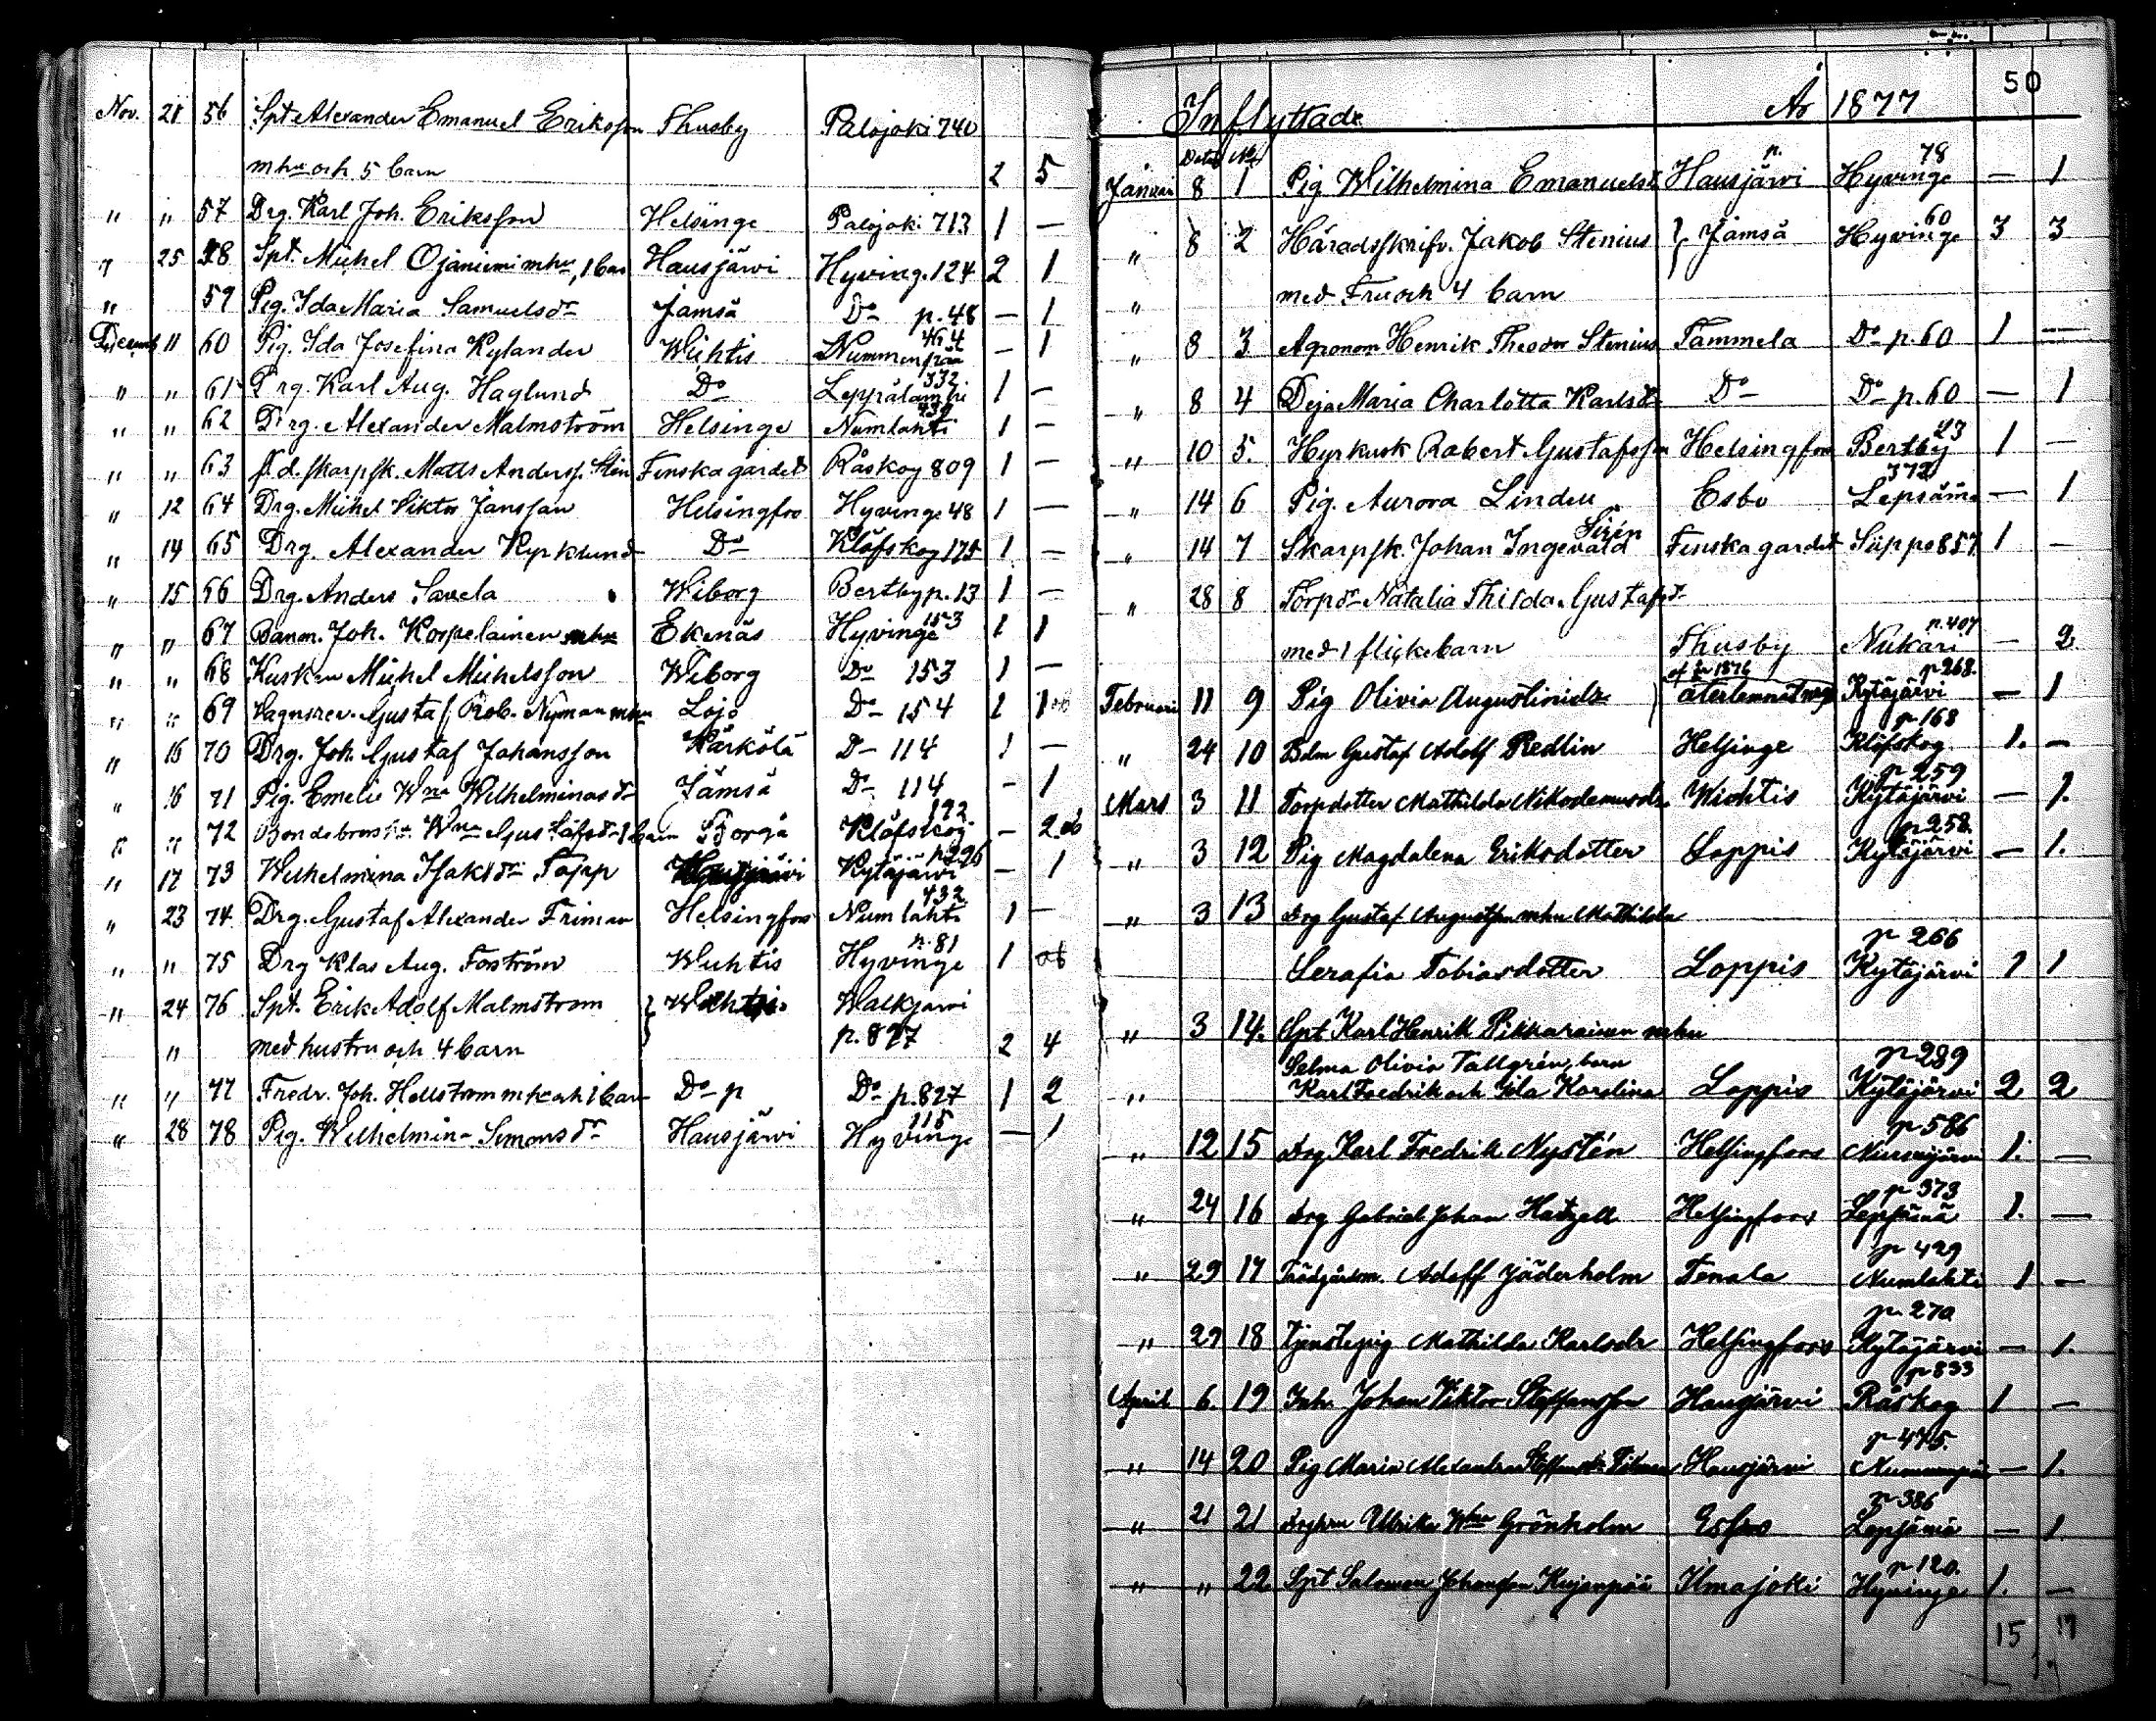 Nov. 21 56 Spt. Alexander Emanuel Eriksson Thusby Palojoki 740
mhu och 5 barn 2 5
" " 57 Drg. Karl Joh. Eriksson Helsinge Palojoki 713 1 —
" 25 58 Spt. Michel Ojaniemi mhu, 1 barn Hausjärvi Hyving. 124 2 1
" 59 Pig. Ida Maria Samuelsdr Jämsä Do p. 48 — 1
Decemb 11 60 Pig. Ida Josefina Rylander Wichtis Nummenpää 464 — 1
" " 61 Drg. Karl Aug. Haglund Do Leppälampi 332 1 —
" " 62 Drg. Alexander Malmström Helsinge Numlahti 439 1 —
" " 63 f.d. skarpsk. Matts Anders. Sten Finska gardet Råskog 809 1 —
" 12 64 Drg. Michel Viktor Jansson Helsingfors Hyvinge 48 1 —
" 14 65 Drg. Alexander Kyrklund Do Klöfskog 175 1 —
" 15 66 Drg. Anders Savela Wiborg Bertby p. 13 1 —
" " 67 Banm. Joh. Korpelainen mhu Ekenäs Hyvinge 153 1 1
" " 68 Kusken Michel Michelsson Wiborg Do 153 1 —
" " 69 Vagnsrev. Gustaf Rob. Nyman mhu Lojo Do 154 1 1
" 16 70 Drg. Joh. Gustaf Johansson Kärkölä D 114 1 —
" 16 71 Pig. Emelie Wna Wilhelminasdr Jämsä Do 114 — 1
" " 72 Wna Gustafsdr 1 barn Borgå Klöfskog 192 — 2
" 17 73 Wilhelmina Isaksdr Topp Hausjärvi Kytäjärvi p. 296 — 1
" 23 74 Drg. Gustaf Alexander Friman Helsingfors Numlahti 432 1 —
" " 75 Drg Klas Aug. Foström Wichtis Hyvinge p. 81 1
" 24 76 Spt. Erik Adolf Malmström } Wichtis Walkjärvi
" med hustru och 4 barn p. 827 2 4
" " 77 Fredr. Joh. Hellström mhu och 1 barn Do p Do p. 827 1 2
" 28 78 Pig. Wilhelmina Simonsdr Hausjärvi Hyvinge 115 — 1
50
Inflyttade År 1877
Dato No
Januari 8 1 Pig. Wilhelmina Emanuelsdr Hausjärvi p. Hyvinge 78 — 1
" 8 2 Häradsskrifv. Jakob Stenius } Jämsä Hyvinge 60 3 3
" med Fru och 4 barn
" 8 3 Agronom Henrik Theodor Stenius Tammela Do p. 60 1 —
" 8 4 Deja Maria Charlotta Karlsdr Do Do p. 60 — 1
" 10 5. Hyrkusk Robert Gustafsson Helsingfors Bertby 23 1 —
" 14 6 Pig. Aurora Lindell Esbo Lepsämä 372 — 1
" 14 7 Skarpsk. Johan Ingevald Sirén Finska gardet Siippo 857 1 —
" 28 8 Torpdr Natalia Thilda Gustafsdr
med 1 flickebarn Thusby Nukari p. 407 — 2
Februari 11 9 Pig Olivia Augustinidr af år 1876 återlemnat Kytäjärvi p 268. — 1
" 24 10 Bdm Gustaf Adolf Redlin Helsinge Klöfskog p 168 1. —
Mars 3 11 Torpdotter Mathilda Nikodemusdr Wichtis Kytäjärvi p 259 — 1.
" 3 12 Pig Magdalena Eriksdotter Loppis Kytäjärvi p 258. — 1.
" 3 13 Drg Gustaf Augustsson mhu Mathilda
Serafia Tobiasdotter Loppis Kytäjärvi p 266 1 1
" 3 14. Spt Karl Henrik Pikkarainen mhu
Selma Olivia Tallgrén, barn
" Karl Fredrik och Ida Karolina Loppis Kytäjärvi p 289 2 2
" 12 15 Drg Karl Fredrik Nystén Helsingfors Nurmijärvi p 586 1. —
" 24 16 Drg Gabriel Johan Hatzell Helsingfors Lepsämä p 373 1. —
" 29 17 Trädgårdsm. Adolf Jäderholm Tenala Numlahti p 429 1 —
" 29 18 Tjenstepig Mathilda Karlsdr Helsingfors Kytäjärvi p. 270 — 1.
April 6. 19 Inh. Johan Viktor Steffansson Hausjärvi Råskog p 833 1 —
" 14 20 Pig Maria Alexandra Steffansdr Hausjärvi Nummenpää p 475. — 1.
" 21 21 Drghru Ulrika Wna Grönholm Esbo Lepsämä p 386 — 1
" " 22 Spt Salomon Johansson Kujanpää Ilmajoki Hyvinge p 120. 1. —
15 17